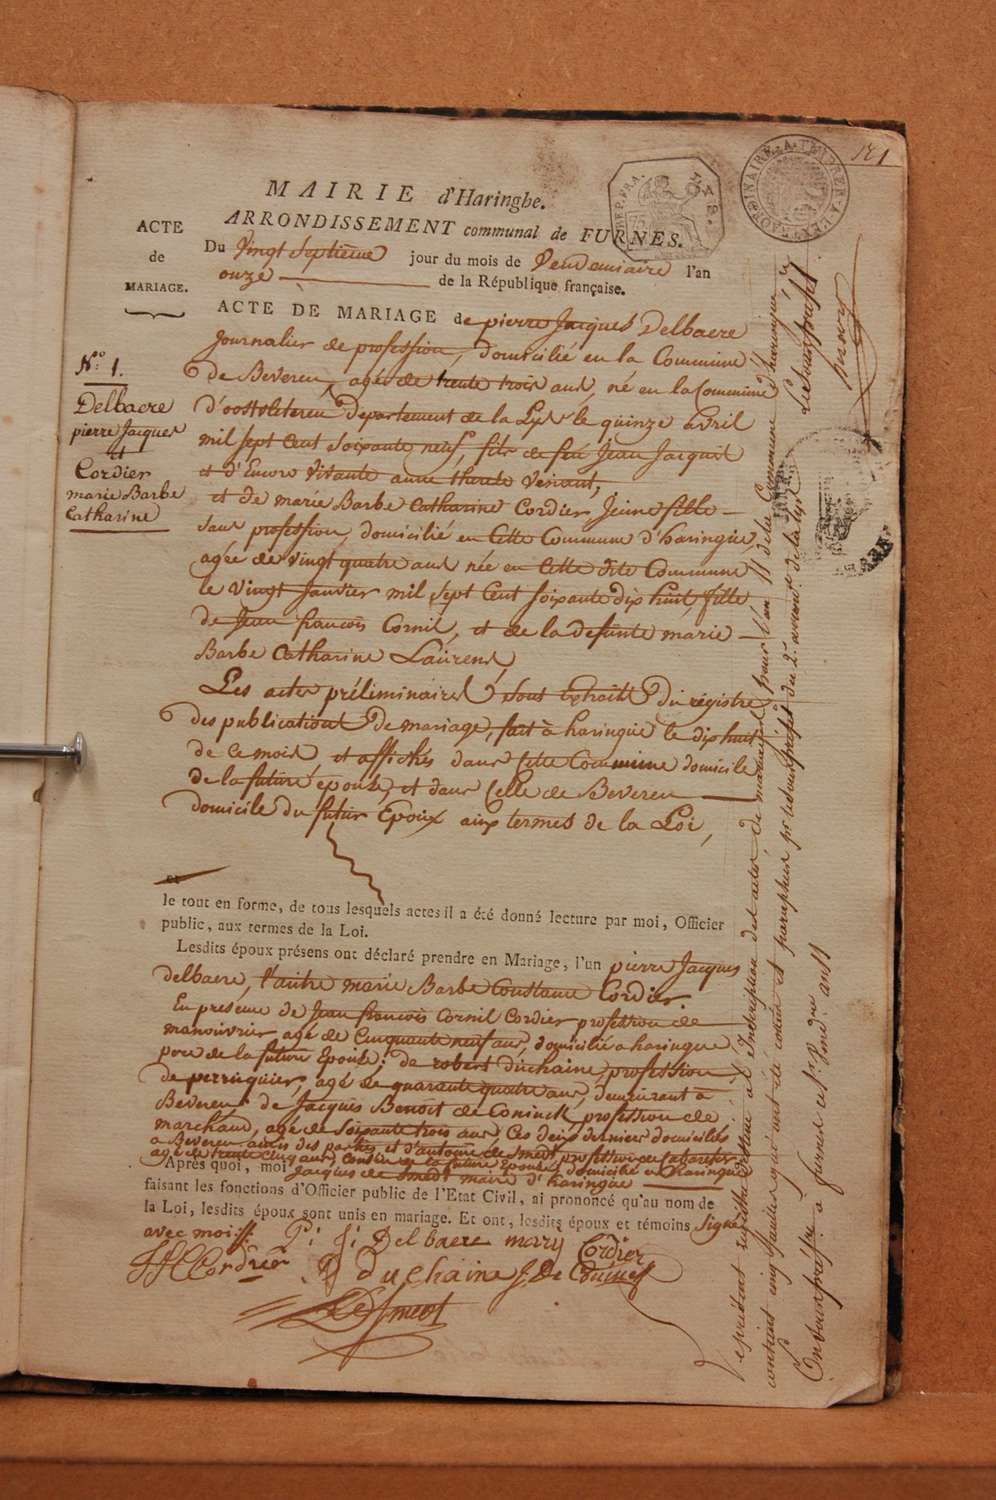 181
MAIRIE d'Haringhe.
ARRONDISSEMENT communal de FURNES.
ACTE
de
MARIAGE.
Du Vingt Septieme jour du mois de Vendemiaire l'an
onze de la République française.
ACTE DE MARIAGE de pierre Jacques Delbaere
Journalier de profession, domicilié en la Commune
de Beveren, agée de trente trois ans, né en la Commune
d'oostvleteren Departement de la Lys le quinze avril
mil sept Cent soixante neuf, fils de feu Jean Jacques
et d'Encore Vivante anne therese
et de marie Barbe Catharine Cordier Jeune fille
sans profession, domicilié en Cette Commune d'haringue,
agée de Vingt quatre ans née en Cette dite Commune
le Vingt Janvier mil sept Cent soixante dix huit, fille
de Jean francois Cornil, et de la defunte marie
Barbe Catharine Laurens,
Les actes préliminaires sont Extraits du régistre
des publications de mariage, fait à haringue le dix huit
de Ce mois, et affichés dans Cette Commune domicile
de la future epouse, et dans Celle de Beveren
domicile du futur Epoux aux termes de la Loi,
N.° 1.
Delbaere
pierre Jacques
et
Cordier
marie Barbe
Catharine
et
le tout en forme, de tous lesquels actes il a été donné lecture par moi, Officier
public, aux termes de la Loi.
Lesdits époux présens ont déclaré prendre en Mariage, l'un pierre Jacques
delbaere, l'autre marie Barbe Constance Cordier.
En présence de Jean francois Cornil Cordier profession de
manouvrier agé de Cinquante neuf ans, domicilié a haringue
pere de la future Epouse; de robert duchaine profession
de perruquier, agé de quarante quatre ans, demeurant à
Beveren de Jacques Benoit de Coninck profession de
marchand, agé de soixante trois ans Ces deux derniers domiciliés
a Beveren amis des parties et d'antoine de Smedt profession de Cabaretier
agé de trente Cinq ans, Cousin de la future Epouse domicilié a haringue
Après quoi, moi Jacques de Smedt maire d'haringue
faisant les fonctions d'Officier public de l'Etat Civil, ai prononcé qu'au nom de
la Loi, lesdits époux sont unis en mariage. Et ont, lesdits époux et témoins signé
avec moi
P: J: Delbaere mary Cordier
JF Cordier R duchaine J. De Coninck
De Smedt
Le present registre destiné à l'Inscription des actes de mariage pour l'an 11 de la Commune d'haringue
contenant cinq feuillets qui ont été cotés et paraphés pr. le sousprefet du 2e. arrond. de la Lys
à furnes ce Vend. an 11
Le sousprefet